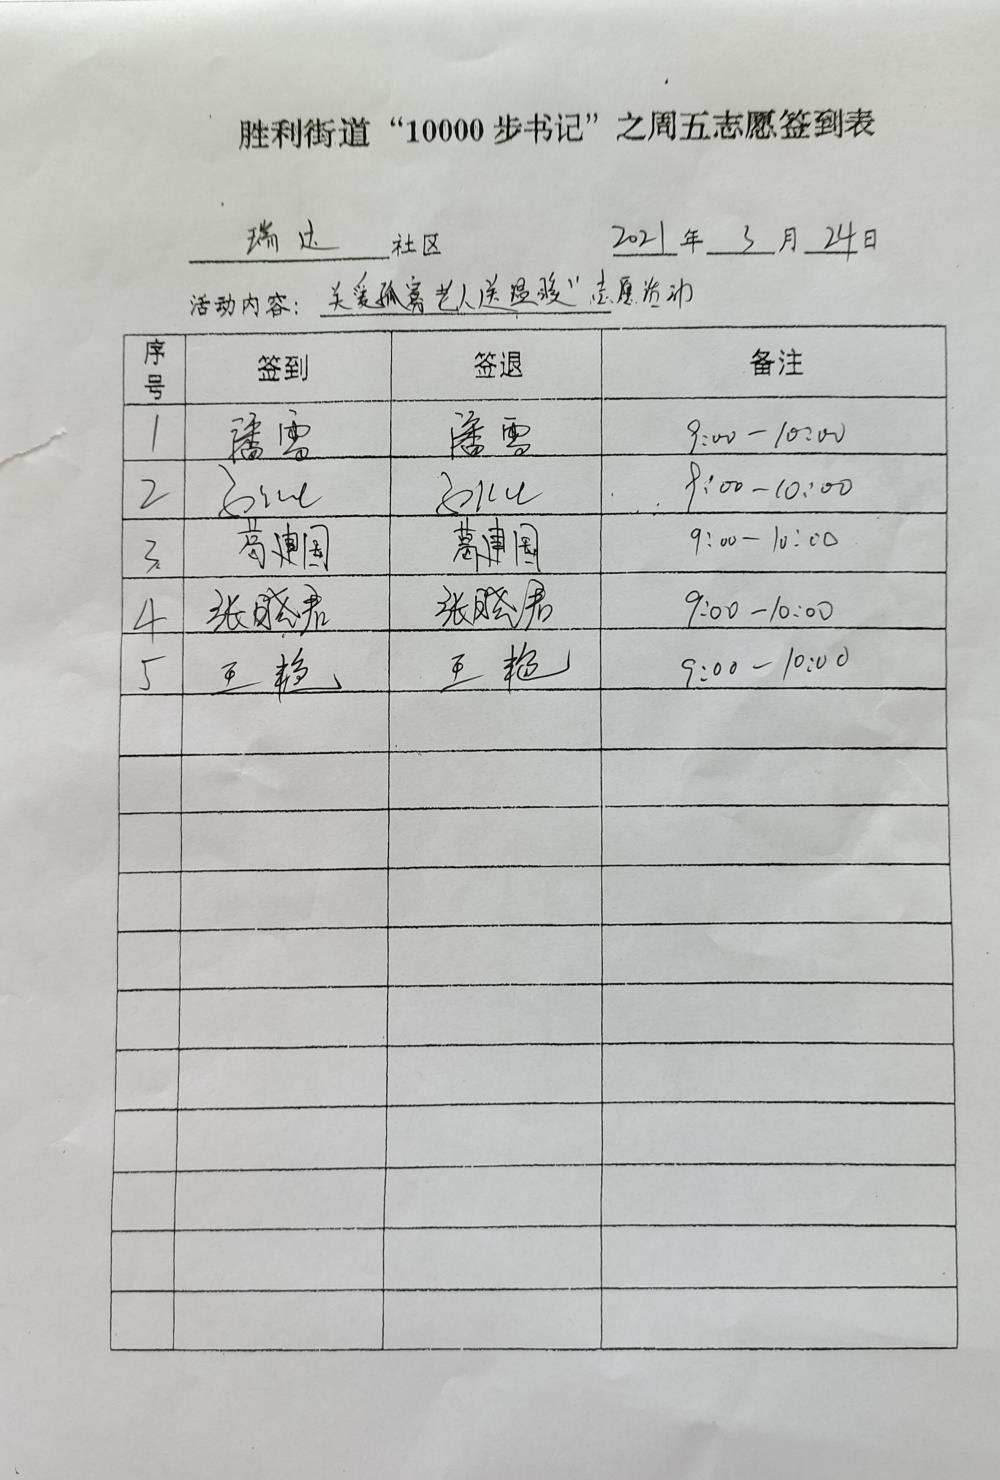 胜利街道“10000步书记”之周五志愿签到表
瑞达 社区 2021年 3 月 24日
活动内容：关爱孤寡老人送温暖”志愿活动
序号 签到 签退 备注
1 潘雪 潘雪 9:00-10:00
2 9:00-10:00
3. 葛建国 葛建国 9:00-10:00
4 张晓君 张晓君 9:00-10:00
5 王艳 王艳 9:00-10:00